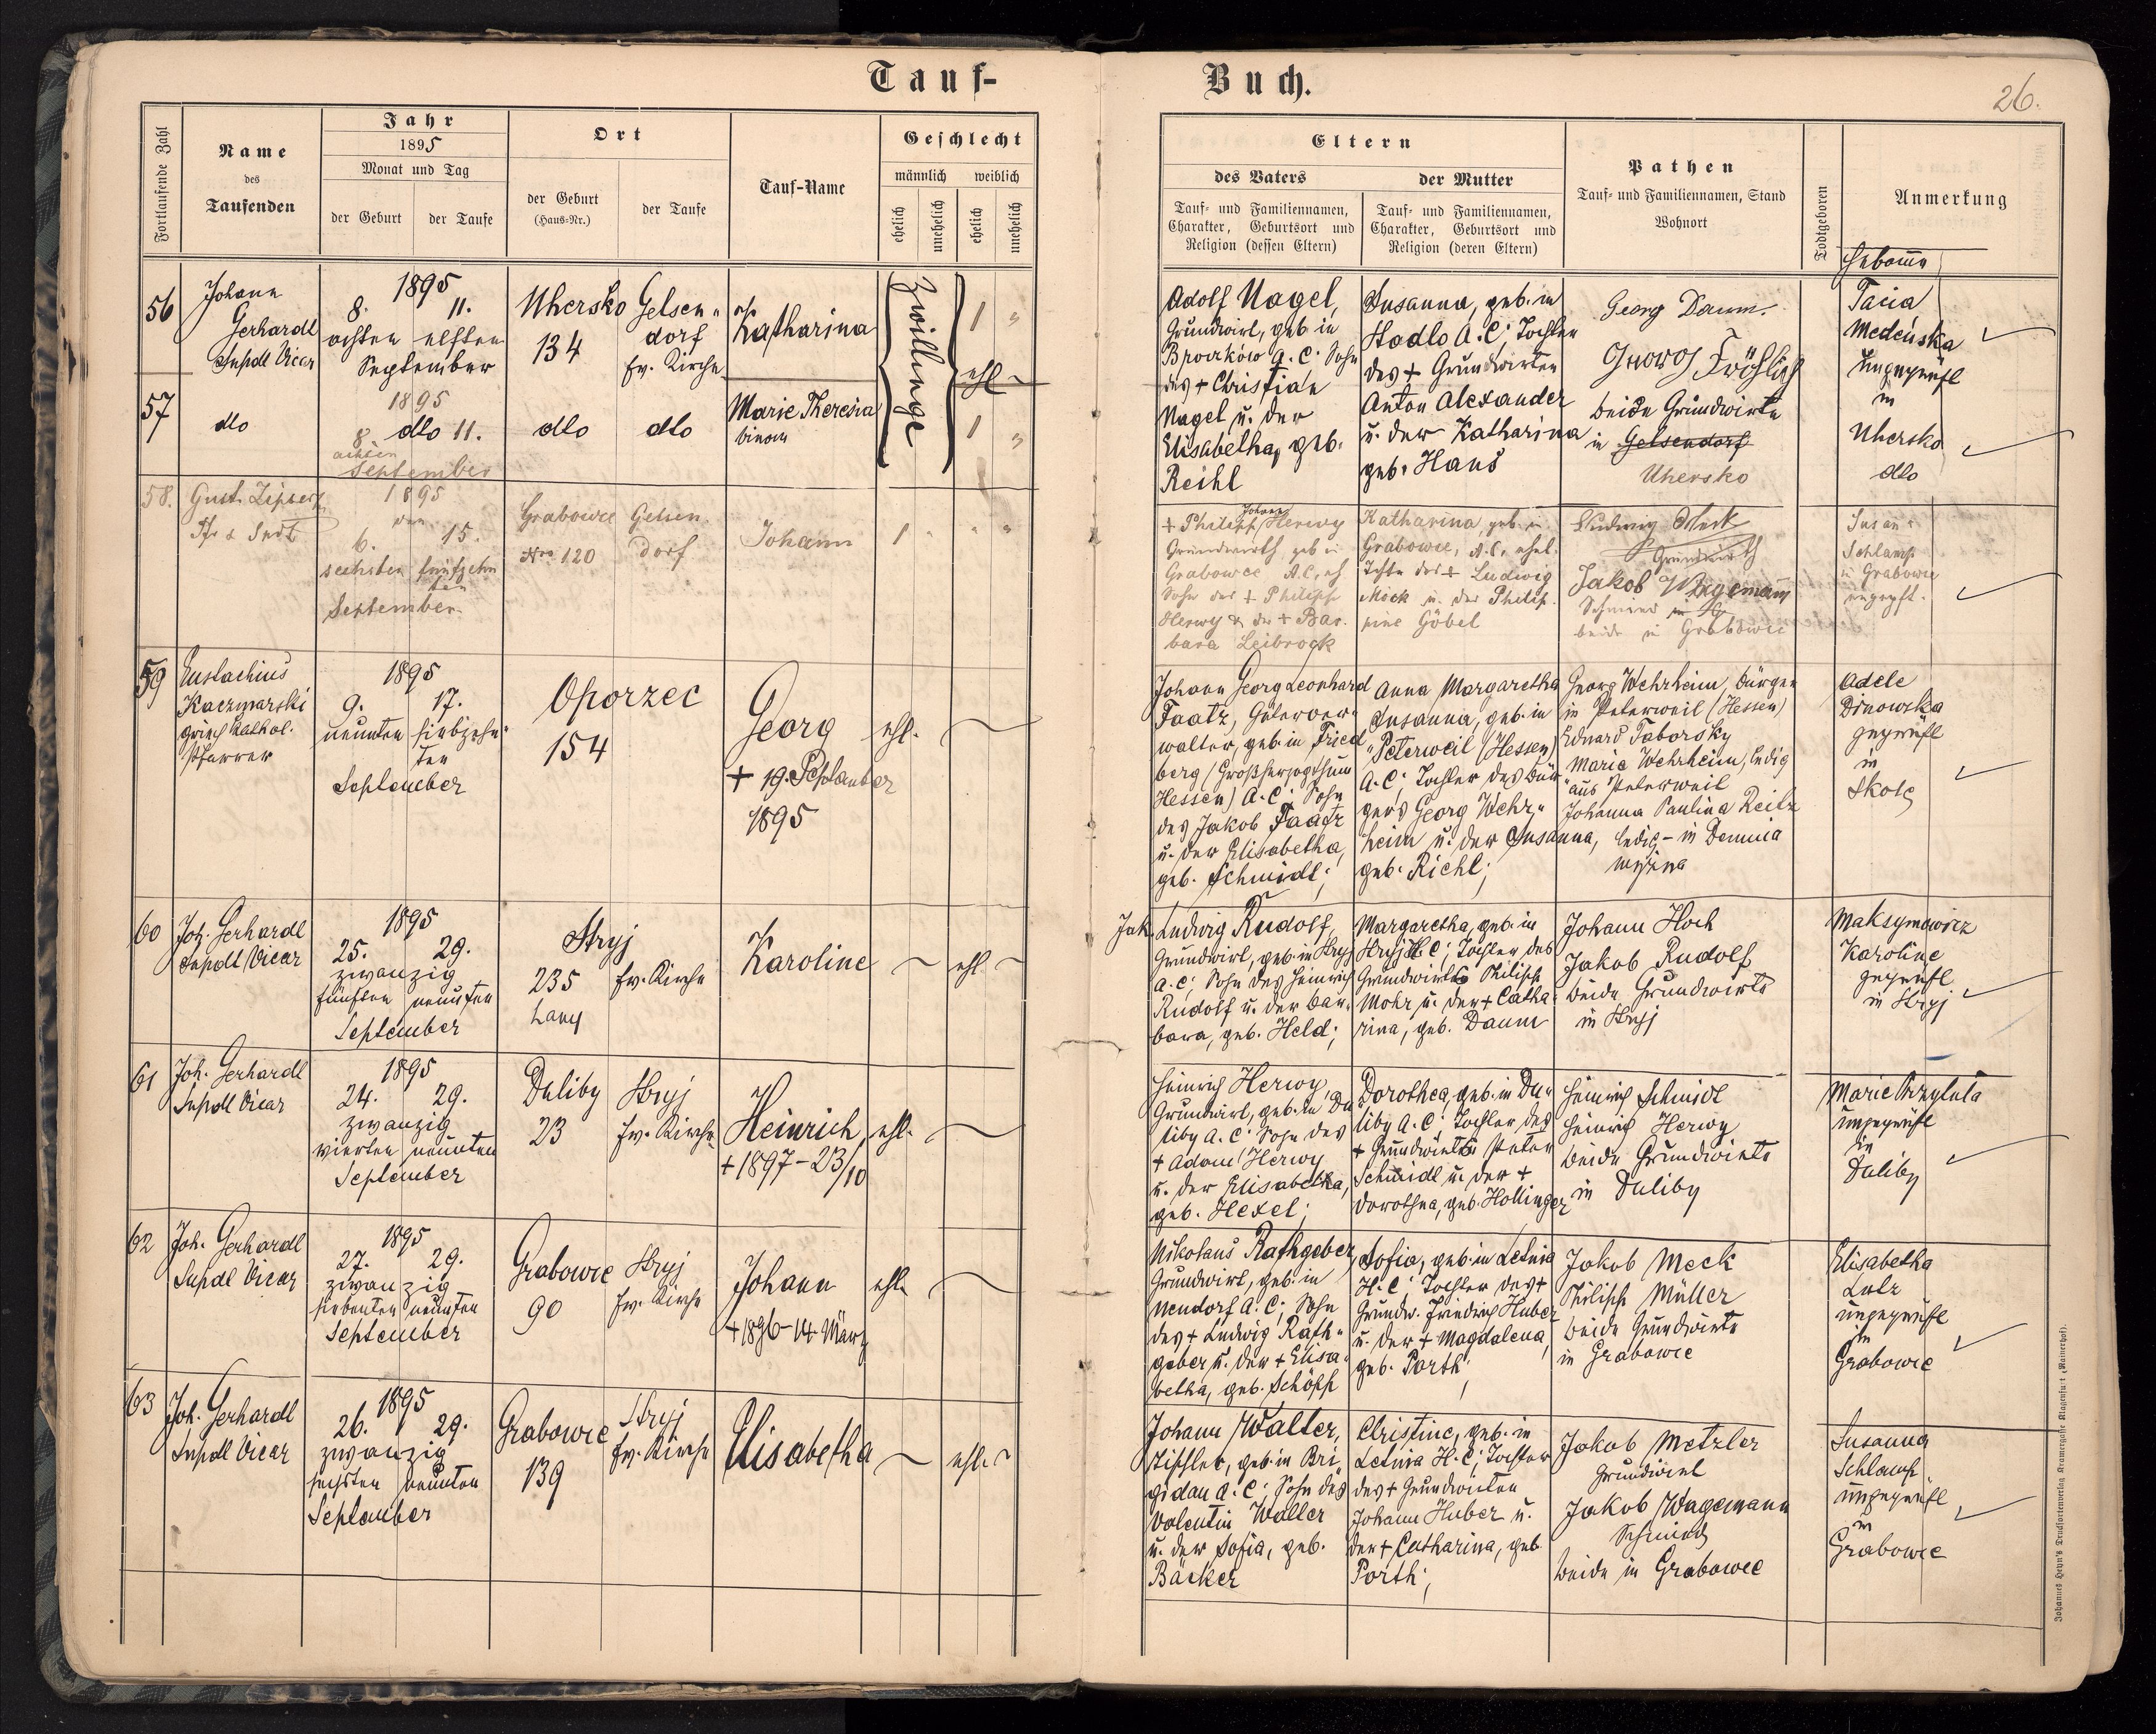 Tauf-
Buch.
26.
Fortlaufende Zahl
Name
des
Taufenden
Jahr
1895
Monat und Tag
der Geburt
der Taufe
Ort
der Geburt
(Haus-Nr.)
der Taufe
Tauf-Name
Geschlecht
männlich
weiblich
ehelich
unehelich
ehelich
unehelich
Eltern
des Vaters
Tauf- und Familiennamen,
Charakter, Geburtsort und
Religion (dessen Eltern)
der Mutter
Tauf- und Familiennamen,
Charakter, Geburtsort und
Religion (deren Eltern)
Pathen
Tauf- und Familiennamen, Stand
Wohnort
Todtgeboren
Anmerkung
56
Johann
Gerhardt
Supdt Vicar
1895
8. 11.
achten elften
September
Uhersko
134
Gelsen-
dorf
ev. Kirche
Katharina
Zwillinge
1 "
ehl
Adolf Nagel,
Grundwirt, geb. in
A. C. Sohn
des + Christian
Nagel u. der
Elisabetha, geb.
Reihl
Susanna, geb. in
Stadlo A. C; Tochter
des + Grundwirten
Anton Alexander
u. der Katharina
geb. Hans
Georg Daum.
Georg Fröhlich
beide Grundwirte
in Gelsendorf
Uhersko
Hebamme
Tacia
Medeńska
ungeprüft
in
Uhersko
dto
57
dto
1895
8. dto 11.
achten
September
dto
dto
Marie Theresia
binom
1 "
58.
Gust. Zipser
Pfr & Sen
1895
den
6. 15.
sechsten fünfzehn
ten
September
Grabowce
Nro 120
Gelsen
dorf
Johann
1 " " "
+ Philipp Johann Herwy
Grundwirth geb in
Grabowce A.C, eh
Sohn des + Philipp
Herwy & der + Bar.
bara Leibrock
Katharina, geb. in
Grabowce, A.C, ehel.
Tochter des + Ludwig
Mock u. der Philip.
pine Göbel
Ludwig Mock
Grundwirth
Jakob Wagemann
Schmied
beide in Grabowce
Susan
Schlamp
in Grabowce
ungepft.
59
Eustachius
Kaczmarski
griech kathol.
Pfarrer
1895
9. 17.
neunten siebzehn-
ten
September
Oporzec
154
Georg
+ 19. September
1895
ehl.
Johann Georg Leonhard
Faatz, Güterver-
walter, geb. in Fried
berg (Großherzogthum
Hessen) A. C; Sohn
des Jakob Faatz
u. der Elisabetha,
geb. Schmidt;
Anna Margaretha
Susanna, geb. in
Peterweil (Hessen)
A. C; Tochter des Bür-
gers Georg Wehr-
heim u. der Susanna,
geb. Riehl;
Georg Wehrheim, Bürger
in Peterweil (Hessen)
Eduard Taborsky
Marie Wehrheim, ledig
aus Peterweil
Johanna Paulina Reitz
ledig - in Demnia
wyżna
Adele
Dinowska
geprüft
in
Skole
60
Joh. Gerhardt
Supdt Vicar
1895
25. 29.
zwanzig
fünften neunten
September
Stryj
235
Lany
ev. Kirche
Karoline
ehl.
Jak.
Ludwig Rudolf,
Grundwirt, geb. in Stryj
A. C; Sohn des Heinrich
Rudolf u. der Bar-
bara, geb. Held;
Margaretha, geb. in
Stryj H. C; Tochter des
Grundwirts Philipp
Mohr u. der + Catha-
rina, geb. Daum
Johann Hoch
Jakob Rudolf
beide Grundwirte
in Stryj
Maksymowicz
Karoline
geprüft
in Stryj
61
Joh. Gerhardt
Supdt Vicar
1895
24. 29.
zwanzig
vierten neunten
September
Duliby
23
Stryj
ev. Kirche
Heinrich
+ 1897 - 23/10
ehl.
Heinrich Herwy,
Grundwirt, geb. in Du-
liby A. C; Sohn des
+ Adam Herwy
u. der Elisabetha,
geb. Hexel;
Dorothea, geb. in Du-
liby A. C; Tochter des
+ Grundwirts Peter
Schmidt u. der +
Dorothea, geb. Hollinger
Heinrich Schmidt
Heinrich Herwy
beide Grundwirte
in Duliby
Marie Przytuła
ungeprüft
in
Duliby
62
Joh. Gerhardt
Supdt Vicar
1895
27. 29.
zwanzig
siebenten neunten
September
Grabowce
90
Stryj
ev. Kirche
Johann
+ 1896 - 14. März
ehl.
Nikolaus Rathgeber,
Grundwirt, geb. in
Neudorf A. C; Sohn
des + Ludwig Rath-
geber u. der + Elisa-
betha, geb. Schöpp
Sofia, geb. in Letnia
H. C; Tochter des +
Grundw. Friedrich Huber
u. der + Magdalena,
geb. Porth;
Jakob Meck
Philipp Müller
beide Grundwirte
in Grabowce
Elisabetha
Lutz
ungeprüft
in
Grabowce
63
Joh. Gerhardt
Supdt Vicar
1895
26. 29.
zwanzig
sechsten neunten
September
Grabowce
139
Stryj
ev. Kirche
Elisabetha
ehl.
Johann Walter,
Tischler, geb. in Bri-
gidau A. C; Sohn des
Valentin Walter
u. der Sofia, geb.
Bäcker
Christine, geb. in
Letnia H. C; Tochter
des + Grundwirten
Johann Huber u.
der + Catharina, geb
Porth;
Jakob Metzler
Grundwirt
Jakob Wagemann
Schmied
beide in Grabowce
Susanna
Schlamp
ungeprüft
in
Grabowce